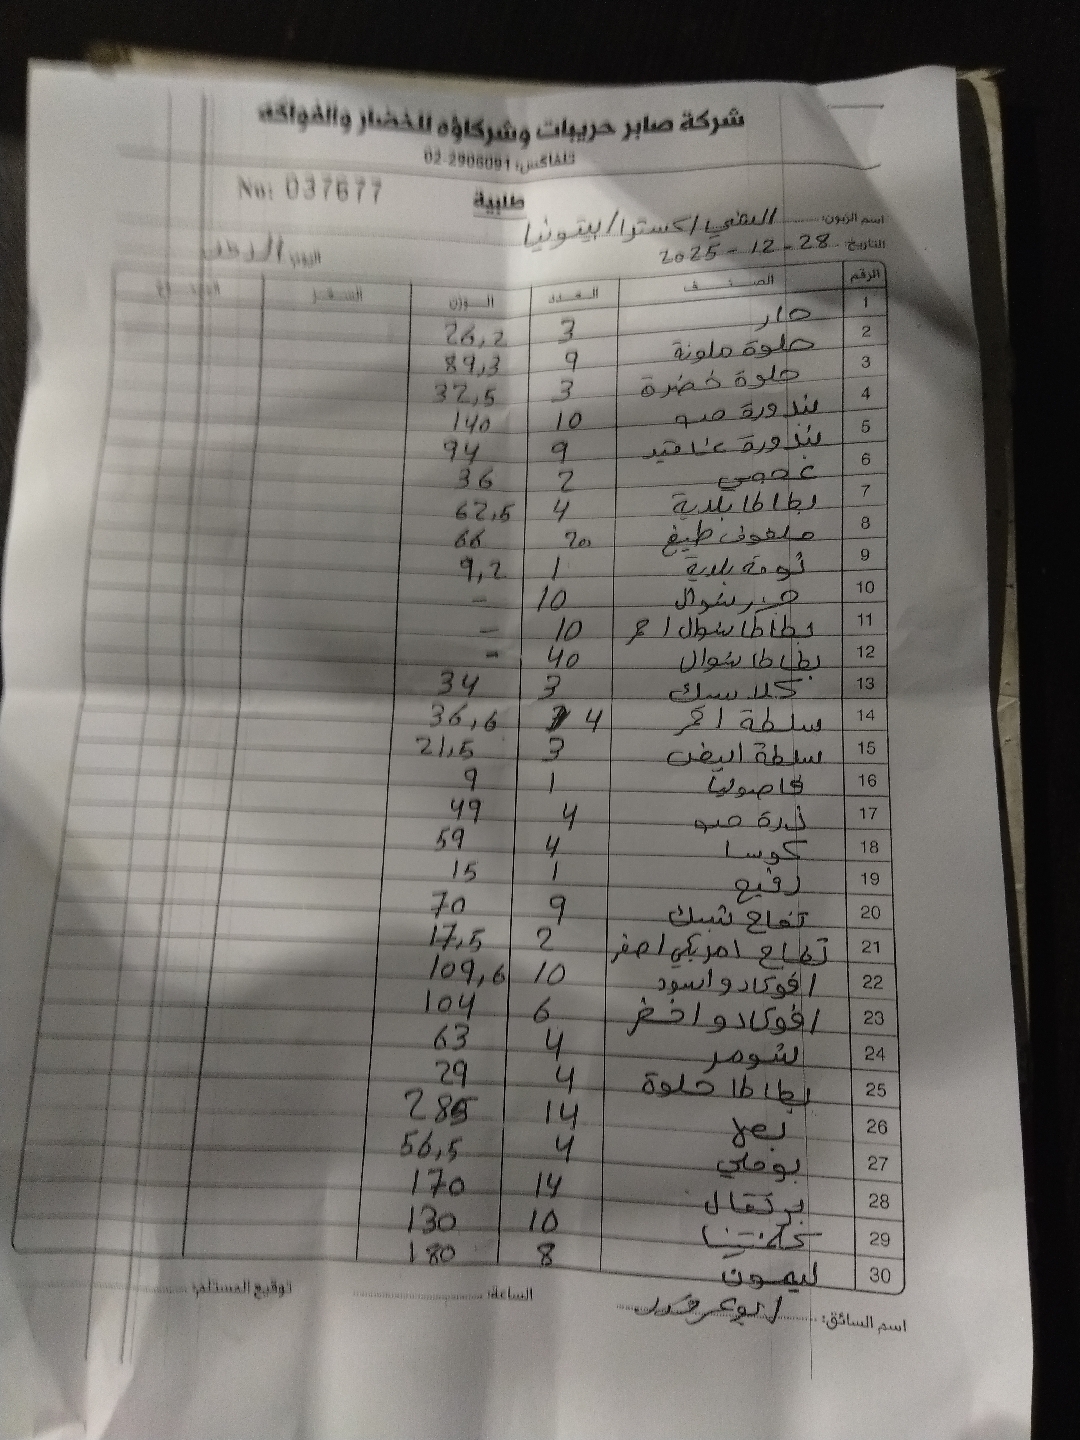 شركة صابر حريبات وشركاؤه للخضار والفواكه
تلفاكس: 02-2906091
طلبية No: 037677
اسم الزبون: اكسترا / بيتونيا
التاريخ: 28-12-2025 اليوم: الاحد
الرقم الصنف العدد الوزن السعر
1 حار 3 26,2
2 حلوة ملونة 9 89,3
3 حلوة خضرة 3 32,5
4 بندورة حبو 10 140
5 بندورة عناقيد 9 94
6 عجمي 2 36
7 بطاطا بلدية 4 62,5
8 ملفوف طبيخ 20 66
9 ثومة بلدية 1 9,2
10 جزر شوال 10 -
11 بطاطا شوال احمر 10 -
12 بطاطا شوال 40 -
13 كلاسيك 3 34
14 سلطة احمر 4 36,6
15 سلطة ابيض 3 21,5
16 فاصوليا 1 9
17 ذرة حبو 4 49
18 كوسا 4 59
19 رفيع 1 15
20 تفاح شبك 9 70
21 تفاح امريكي اصفر 2 17,5
22 افوكادو اسود 10 109,6
23 افوكادو اخضر 6 104
24 شومر 4 63
25 بطاطا حلوة 4 29
26 بصل 14 285
27 بوملي 4 56,5
28 برتقال 14 170
29 كلمنتينا 10 130
30 ليمون 8 180
اسم السائق: الساعة: توقيع المستلم: